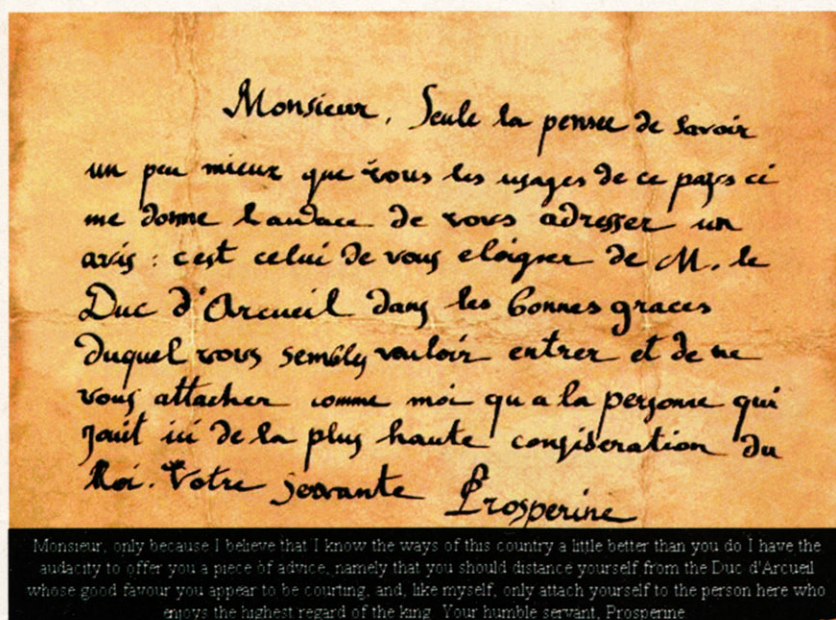 Monsieur, Seule la pensee de savoir
un peu mieux que vous les usages de ce pays ci
me donne laudace de vous adresser un
avis : cest celui de vous eloigner de M. le
Duc d'Arcueil dans les bonnes graces
duquel vous sembly vouloir entrer et de ne
vous attacher comme moi qu a la personne qui
jouit ici de la plus haute consideration du
Roi. Votre servante Prosperine
Monsieur, only because I believe that I know the ways of this country a little better than you do I have the
audacity to offer you a piece of advice, namely that you should distance yourself from the Duc d'Arcueil
whose good favour you appear to be courting, and, like myself, only attach yourself to the person here who
enjoys the highest regard of the king. Your humble servant, Prosperine